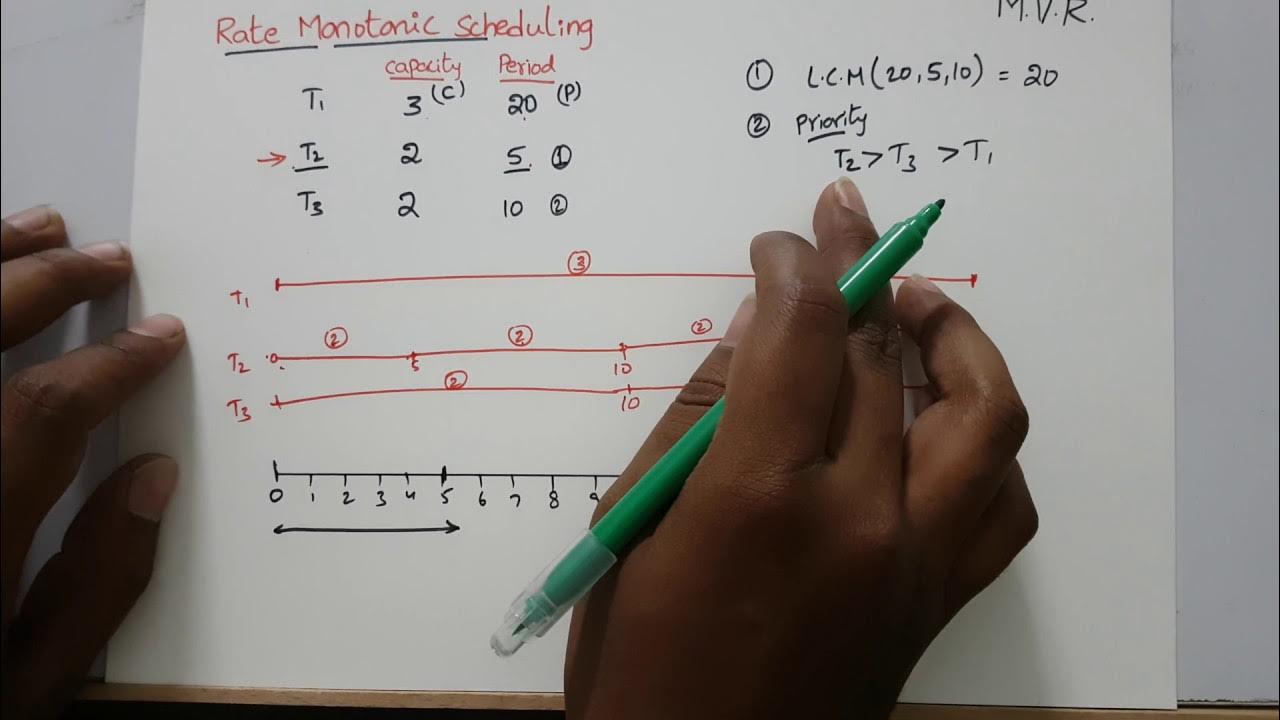 M.V.R.
Rate Monotonic Scheduling
capacity Period
T1 3 (C) 20 (P)
→ T2 2 5 ①
T3 2 10 ②
① L.C.M (20, 5, 10) = 20
② Priority
T2 > T3 > T1
③
T1
② ② ②
T2 0 5 10
②
T3 10
0 1 2 3 4 5 6 7 8 9